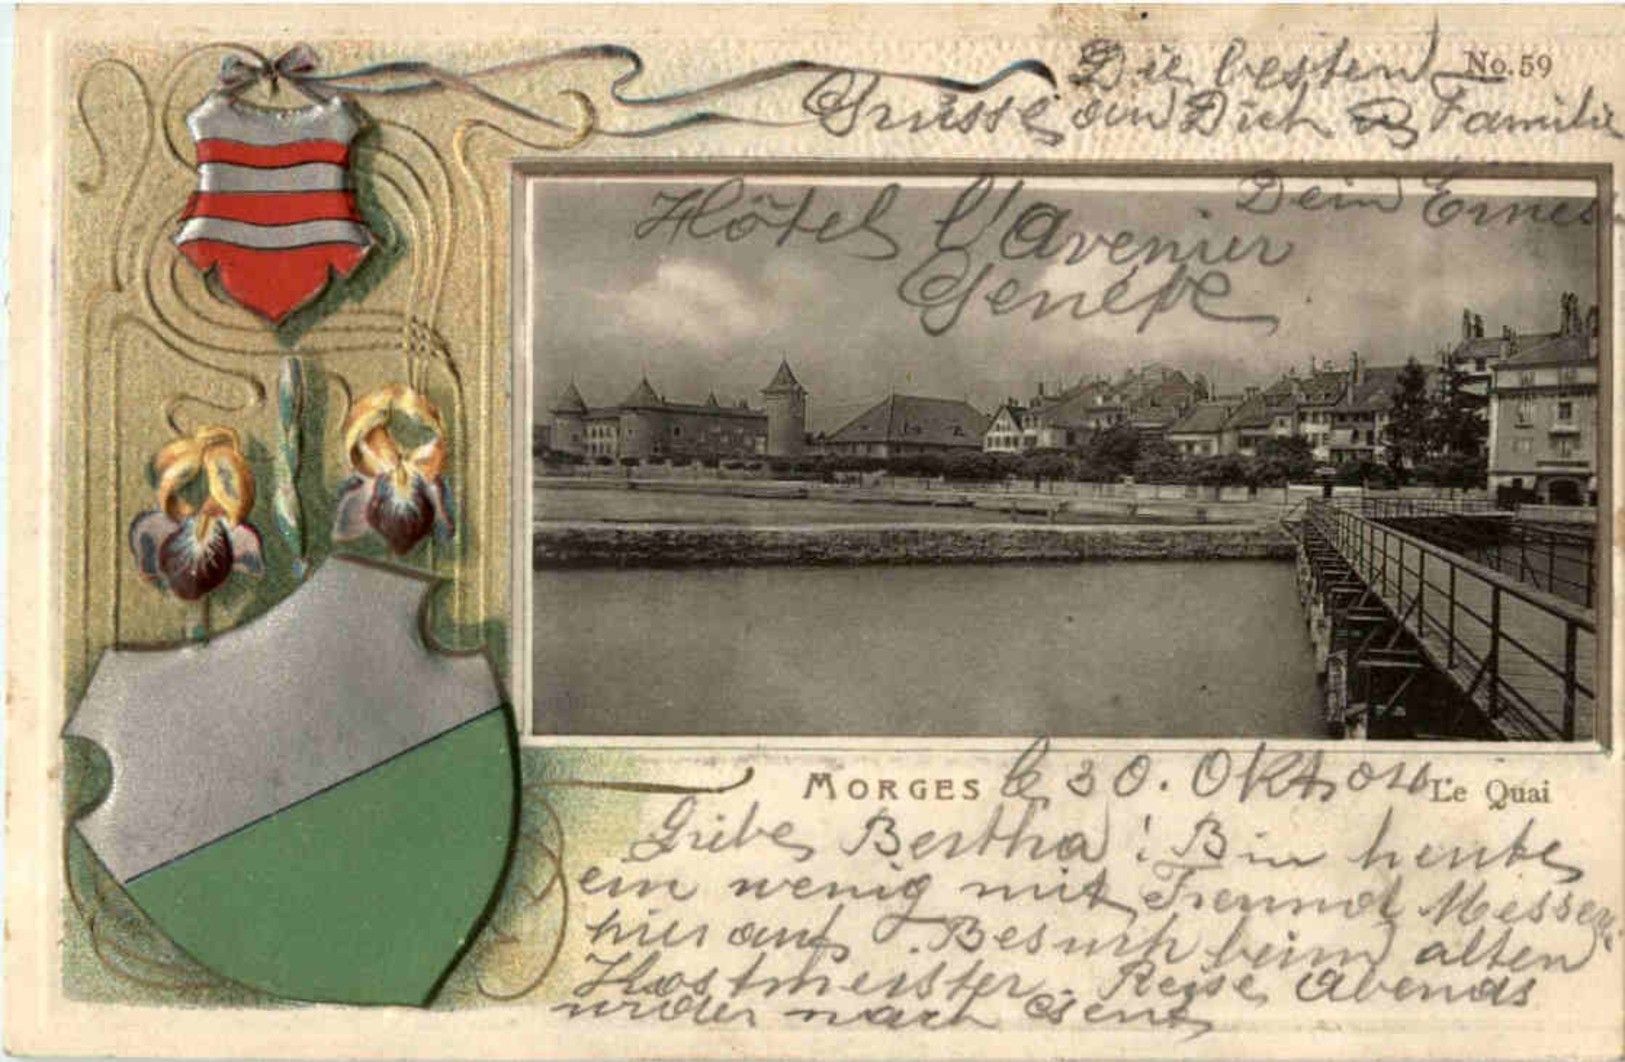 No. 59
Die besten
Grüsse an Dich & Familie
Dein Ernest
Hôtel l'Avenir
Genève
MORGES le 30. Okt. 04 Le Quai
Liebe Bertha! Bin heute
ein wenig mit Freund Messer
hier auf Besuch beim alten
Kostmeister. Reise Abends
wider nach Genf